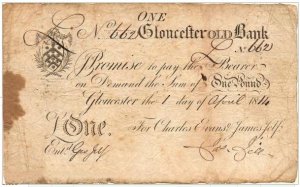 ONE
No. 662 Gloucester OLD Bank
No 662
I Promise to pay the Bearer
on Demand the Sum of One Pound
Gloucester the 1 day of April 1814
£ One. For Charles Evans & James Jelf
Entd. Geo Jelf Jas Jelf